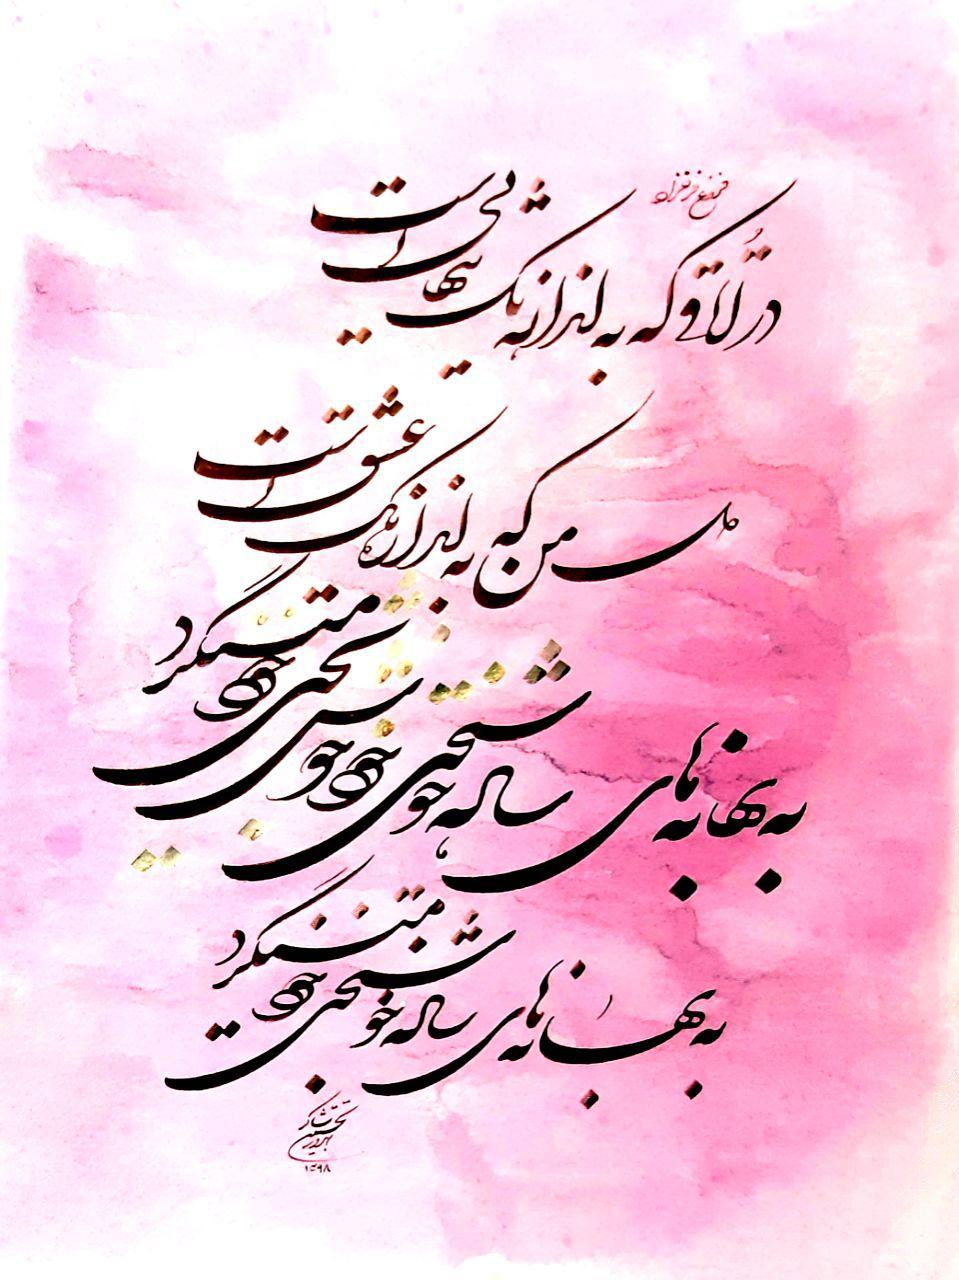 فروغ فرخزاد
در اتاقی که به اندازه یک تنهایی است
دل من که به اندازه یک عشق است
به بهانه های ساده خوشبختی خود مینگرد
به بهانه های ساده خوشبختی خود مینگرد
۱۳۹۸